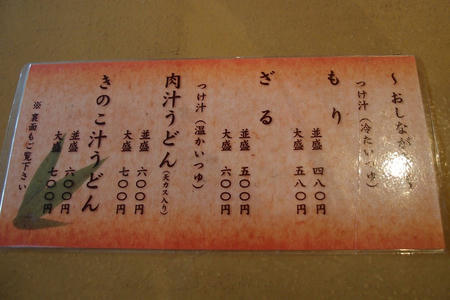 ～おしなが
つけ汁（冷たいつゆ）
もり
並盛 四八〇円
大盛 五八〇円
ざる
並盛 五〇〇円
大盛 六〇〇円
つけ汁（温かいつゆ）
肉汁うどん（天カス入り）
並盛 六〇〇円
大盛 七〇〇円
きのこ汁うどん
並盛 六〇〇円
大盛 七〇〇円
※裏面もご覧下さい